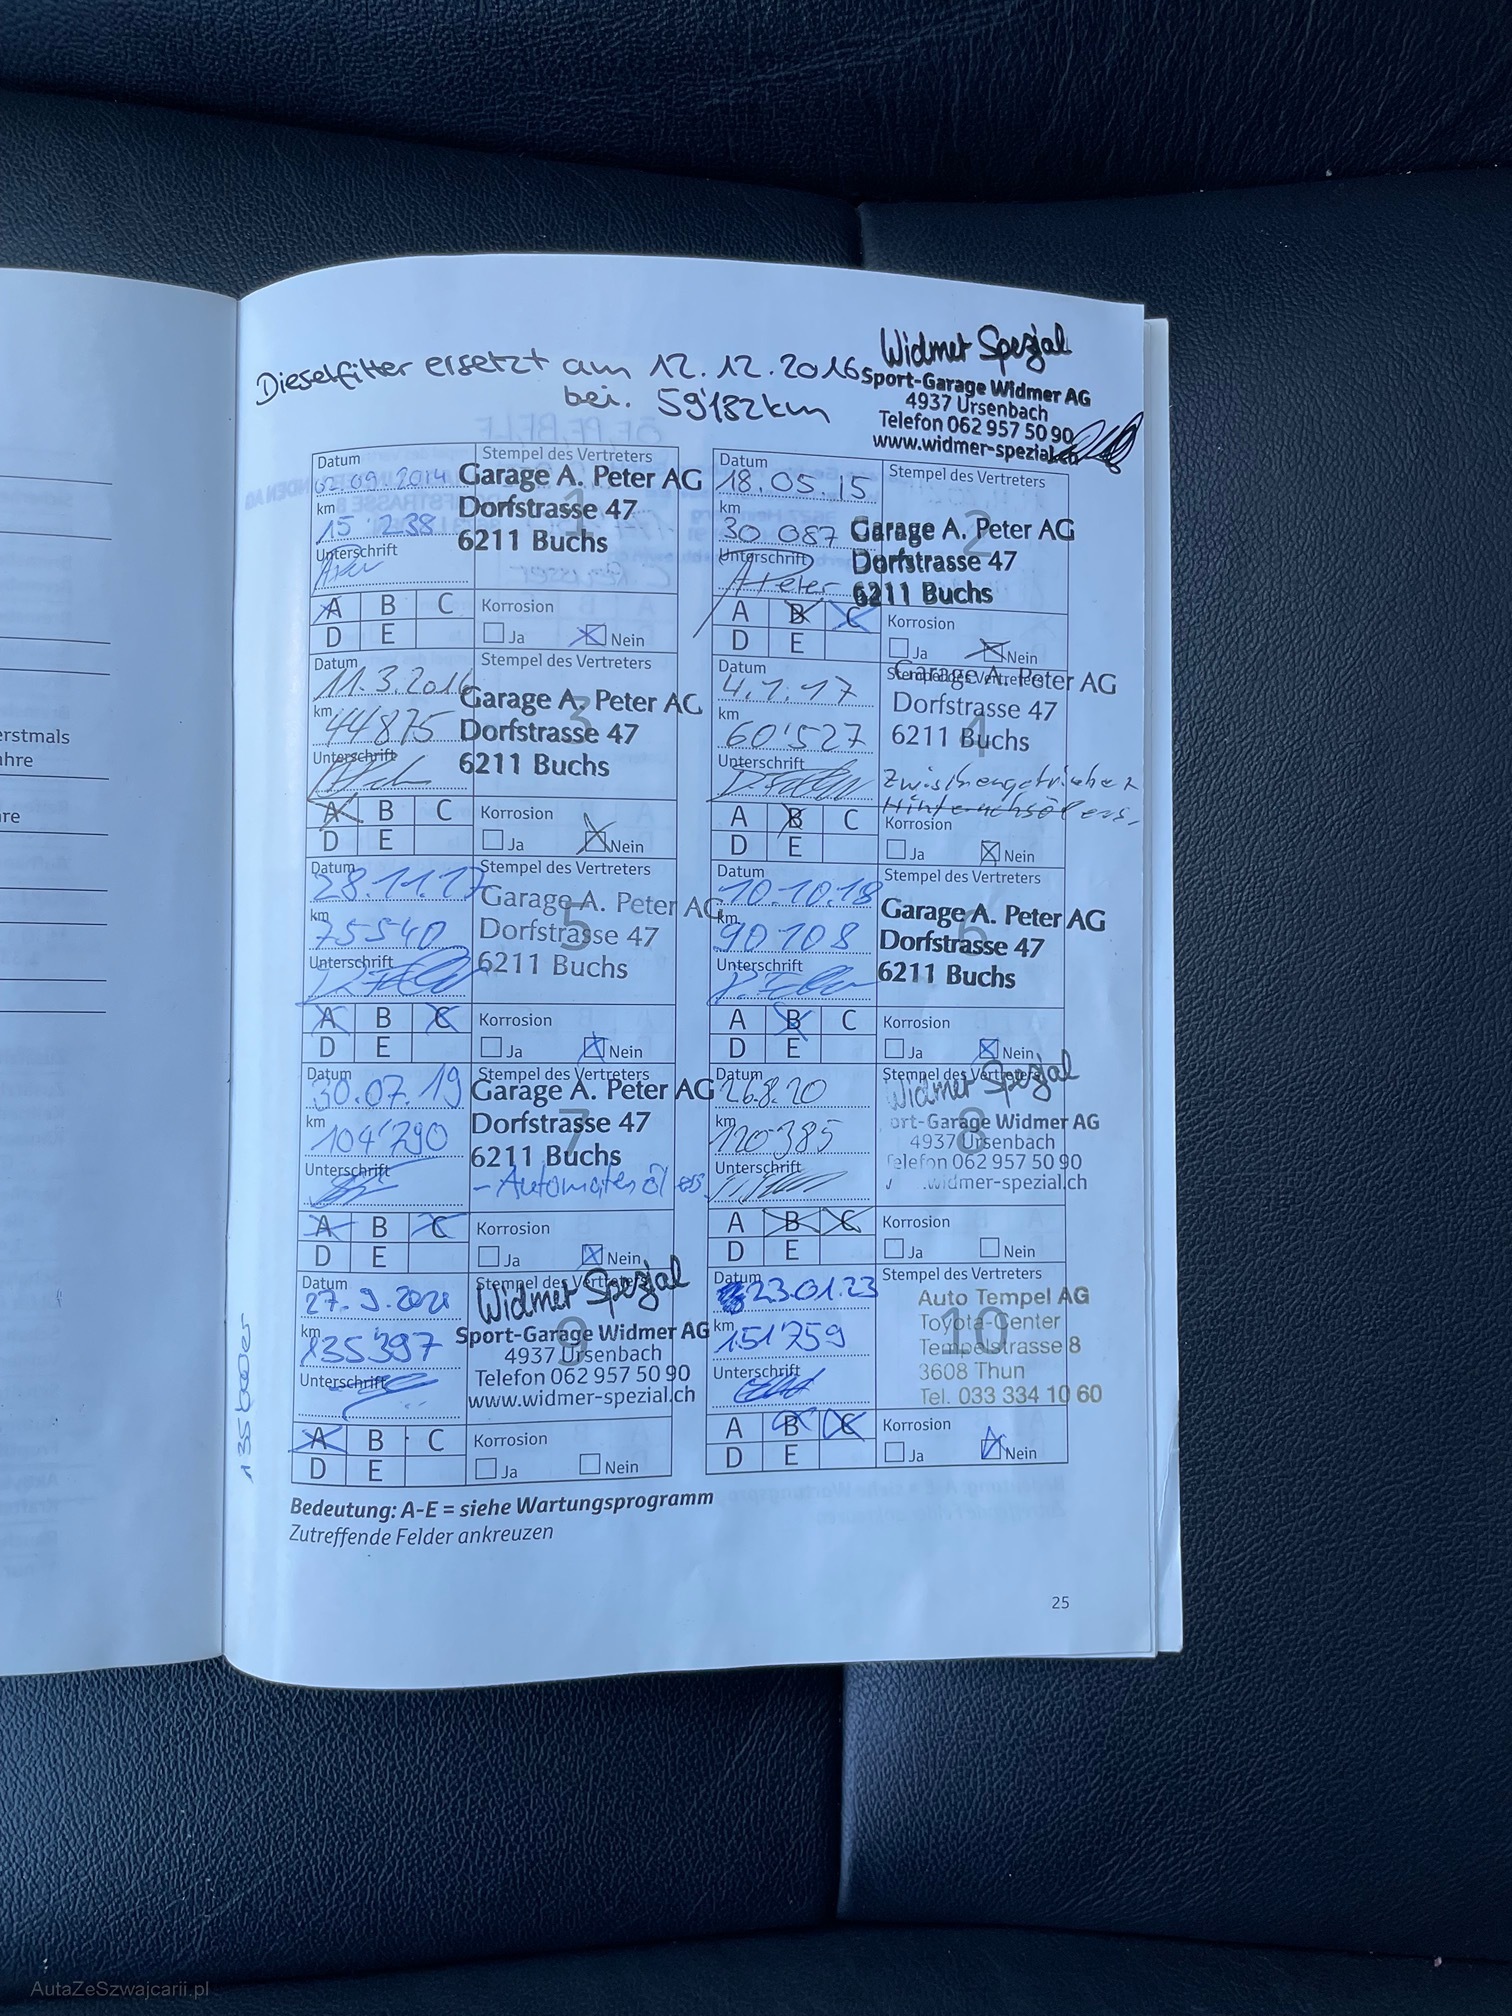 erstmals
ahre
re
Dieselfilter ersetzt am 12.12.2016
bei. 59'182km
Widmer Spezial
Sport-Garage Widmer AG
4937 Ursenbach
Telefon 062 957 50 90
www.widmer-spezial.ch
Datum
02.09.2014
km
15 238
Unterschrift
Stempel des Vertreters
1
Garage A. Peter AG
Dorfstrasse 47
6211 Buchs
A B C
D E
Korrosion
Ja Nein
Datum
18.05.15
km
30 087
Unterschrift
APeter
Stempel des Vertreters
2
Garage A. Peter AG
Dorfstrasse 47
6211 Buchs
A B C
D E
Korrosion
Ja Nein
Datum
11.3.2016
km
44875
Unterschrift
Stempel des Vertreters
3
Garage A. Peter AG
Dorfstrasse 47
6211 Buchs
A B C
D E
Korrosion
Ja Nein
Datum
4.1.17
km
60'527
Unterschrift
Stempel des Vertreters
4
Garage A. Peter AG
Dorfstrasse 47
6211 Buchs
A B C
D E
Korrosion
Ja Nein
Datum
28.11.17
km
75540
Unterschrift
Stempel des Vertreters
5
Garage A. Peter AG
Dorfstrasse 47
6211 Buchs
A B C
D E
Korrosion
Ja Nein
Datum
10.10.18
km
90108
Unterschrift
Stempel des Vertreters
6
Garage A. Peter AG
Dorfstrasse 47
6211 Buchs
A B C
D E
Korrosion
Ja Nein
Datum
30.07.19
km
104'290
Unterschrift
Stempel des Vertreters
7
Garage A. Peter AG
Dorfstrasse 47
6211 Buchs
- Automatenöl ers.
A B C
D E
Korrosion
Ja Nein
Datum
26.8.20
km
120385
Unterschrift
Stempel des Vertreters
8
Widmer Spezial
ort-Garage Widmer AG
4937 Ursenbach
elefon 062 957 50 90
.widmer-spezial.ch
A B C
D E
Korrosion
Ja Nein
Datum
27.9.2021
km
135'397
Unterschrift
Stempel des Vertreters
9
Widmer Spezial
Sport-Garage Widmer AG
4937 Ursenbach
Telefon 062 957 50 90
www.widmer-spezial.ch
A B C
D E
Korrosion
Ja Nein
Datum
23.01.23
km
151'759
Unterschrift
Stempel des Vertreters
10
Auto Tempel AG
Toyota-Center
Tempelstrasse 8
3608 Thun
Tel. 033 334 10 60
A B C
D E
Korrosion
Ja Nein
Bedeutung: A-E = siehe Wartungsprogramm
Zutreffende Felder ankreuzen
25
AutaZeSzwajcarii.pl